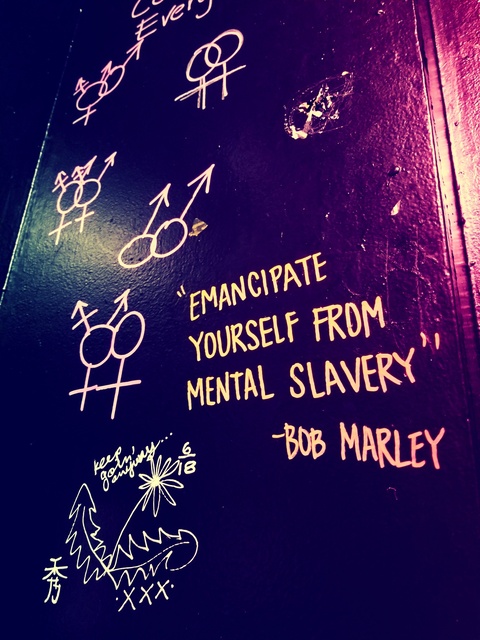 Every
"EMANCIPATE
YOURSELF FROM
MENTAL SLAVERY"
-BOB MARLEY
keep
goin'
anyways...
6
18
XXX.